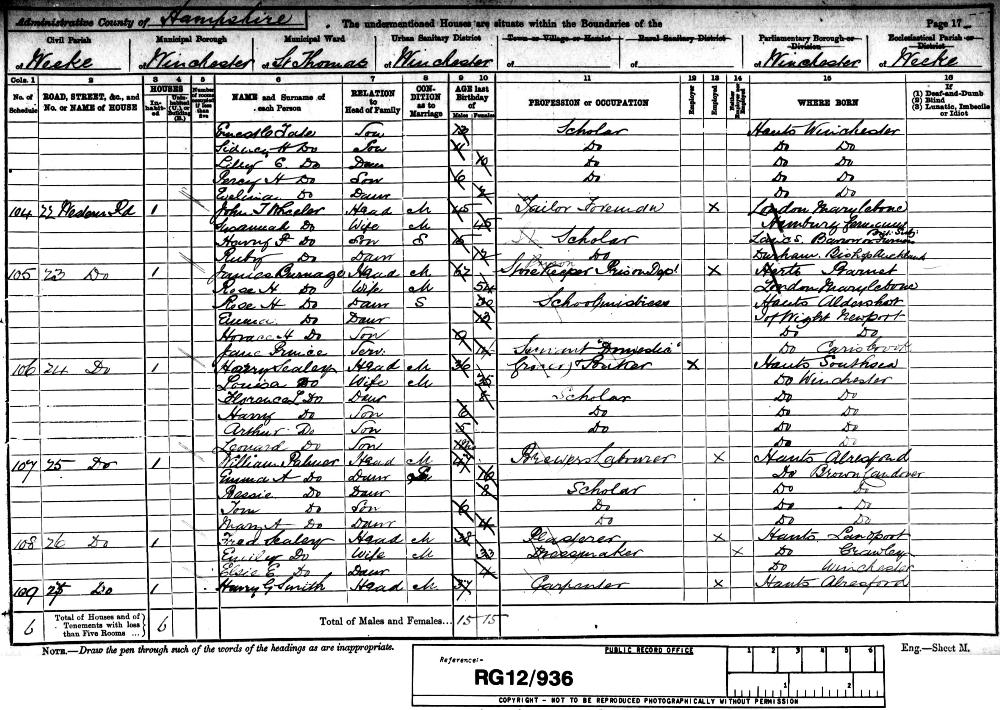 Administrative County of Hampshire The undermentioned Houses are situate within the Boundaries of the Page 17
Civil Parish Municipal Borough Municipal Ward Urban Sanitary District Town or Village or Hamlet Rural Sanitary District Parliamentary Borough or Division Ecclesiastical Parish or District
of Weeke of Winchester of St Thomas of Winchester of of of Winchester of Weeke
Cols. 1 2 3 4 5 6 7 8 9 10 11 12 13 14 15 16
No. of Schedule ROAD, STREET, &c., and No. or NAME of HOUSE HOUSES In-habited Uninhabited (U.) or Building (B.) Number of rooms occupied if less than five NAME and Surname of each Person RELATION to Head of Family CONDITION as to Marriage AGE last Birthday of Males Females PROFESSION or OCCUPATION Employer Employed Neither Employer nor Employed WHERE BORN If (1) Deaf-and-Dumb (2) Blind (3) Lunatic, Imbecile or Idiot
Ernest C Tate Son 13 Scholar Hants Winchester
Sidney H Do Son 11 Do Do Do
Lilly E Do Daur 10 Do Do Do
Percy H Do Son 6 Do Do Do
Evelina Do Daur 2 Do Do
104 22 Western Rd 1 John T Wheeler Head M 45 Tailor Foreman X London Marylebone
Susannah Do Wife M 45
Harry P Do Son S Scholar
Ruby Do Daur 12 Do Durham Bishop Auckland
105 23 Do 1 James Burnage Head M 62 Storekeeper Prison Dept X Herts Barnet
Rose H Do Wife M 54 London Marylebone
Rose H Do Daur S 20 Schoolmistress Hants Aldershot
Emma Do Daur 13 I of Wight Newport
Horace H Do Son 9 Do Do
Jane Prince Serv. Servant "Domestic" Do Carisbrook
106 24 Do 1 Harry Sealey Head M 36 Grocer & Porker X Hants Southsea
Louisa Do Wife M 35 Do Winchester
Florence L Do Daur 8 Scholar Do Do
Harry Do Son 6 Do Do Do
Arthur Do Son 5 Do Do Do
Leonard Do Son Do Do
107 25 Do 1 William Palmer Head M 47 Brewers Labourer X Hants Alresford
Emma A Do Daur S 16 Do Brown Candover
Bessie Do Daur 8 Scholar Do Do
Tom Do Son 6 Do Do Do
Mary A Do Daur 4 Do Do Do
108 26 Do 1 Fred Sealey Head M 38 Plasterer X Hants Landport
Emily Do Wife M 33 Dressmaker X Do Crawley
Elsie E Do Daur Do Winchester
109 Do 1 Harry G Smith Head M 37 Carpenter X Hants Alresford
6 Total of Houses and of Tenements with less than Five Rooms ... 6 Total of Males and Females... 15 15
NOTE.—Draw the pen through such of the words of the headings as are inappropriate. Eng.—Sheet M.
Reference:- PUBLIC RECORD OFFICE 1 2 3 4 5 6
RG12/936 1 2
COPYRIGHT - NOT TO BE REPRODUCED PHOTOGRAPHICALLY WITHOUT PERMISSION